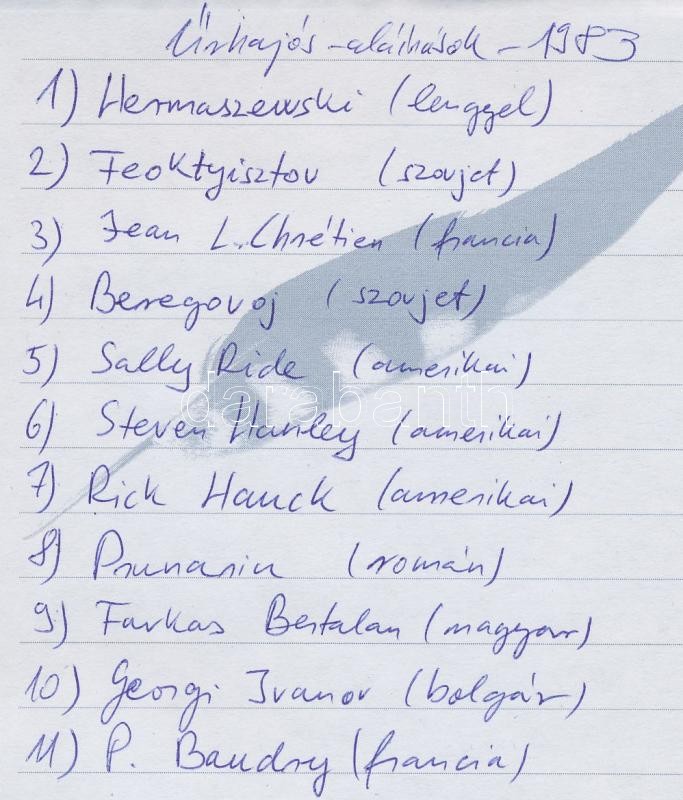 Űrhajós-aláírások - 1983
1) Hermaszewski (lengyel)
2) Feoktyisztov (szovjet)
3) Jean L. Chrétien (francia)
4) Beregovoj (szovjet)
5) Sally Ride (amerikai)
darabanth
6) Steven Hawley (amerikai)
7) Rick Hauck (amerikai)
8) Prunariu (román)
9) Farkas Bertalan (magyar)
10) Georgi Ivanov (bolgár)
11) P. Baudry (francia)